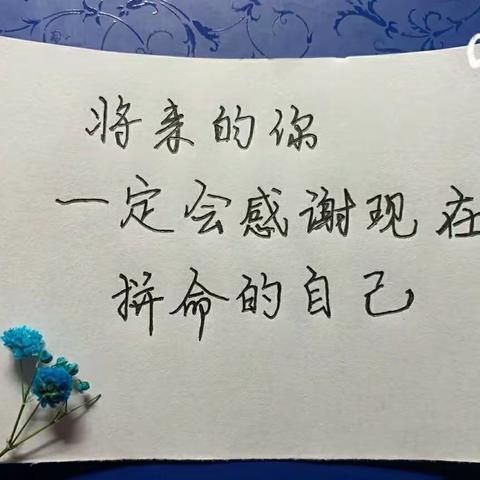 将来的你
一定会感谢现在
拼命的自己